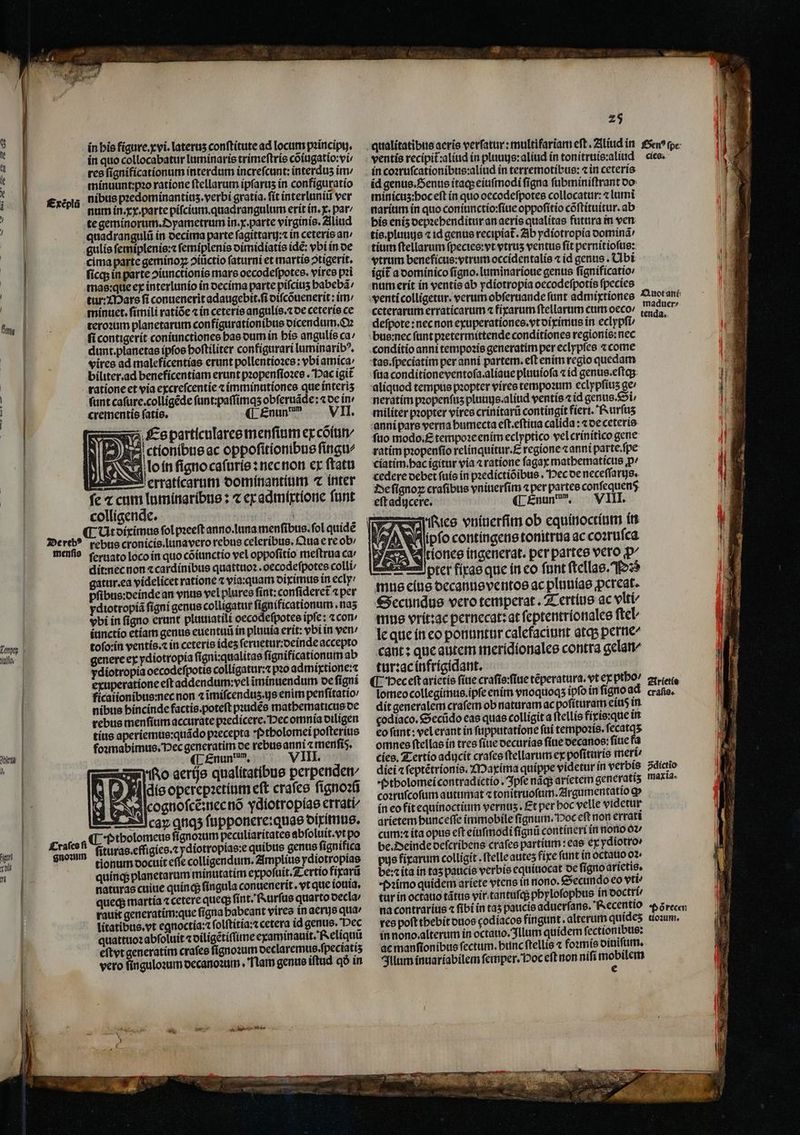 25
in his figure.xvi. laterus constitute ad locum principij.
in quo collocabatur luminaris trimestris cõiugatio:vi/
res significationum interdum increscunt: interdus im/
minuunt:pro ratione stellarum ipsarus in configuratio
Exẽplũ
nibus predominantius.verbi gratia. sit interluniũ ver
num in.xx.parte piscium.quadrangulum erit in.x. par/
te geminorum.Dyametrum in.x.parte virginis. Aliud
quadrangulũ in decima parte sagittarij:⁊ in ceteris an/
gulis semiplenis:⁊ semiplenis dimidiatis idẽ: vbi in de
cima parte geminoꝝ ↄiũctio saturni et martis ↄtigerit.
sicqꝫ in parte ↄiunctionis mars oecodespotes. vires pri
mas:que ex interlunio in decima parte pisciuꝫ habebã/
tur:Mars si conuenerit adaugebit.si discõuenerit: im/
minuet. simili ratiõe ⁊ in ceteris angulis.⁊ de ceteris ce
terorum planetarum configurationibus dicendum.Qꝫ
si contigerit coniunctiones has dum in his angulis ca/
dunt.planetas ipsos hostiliter configurari luminaribꝰ.
vires ad maleficentias erunt pollentiores : vbi amica/
biliter.ad beneficentiam erunt propensiores . Hac igit̃
ratione et via excrescentie ⁊ imminutiones que interis
sunt casure.colligẽde sunt:passimqꝫ obseruãde: ⁊ de in/
crementis satis. ¶ Enunᵗᵘᵐ VII.
Es particulares mensium ex cõiun/
ctionibus ac oppositionibus singu/
lo in signo casuris : nec non ex statu
erraticarum dominantium ⁊ inter
se ⁊ cum luminaribus : ⁊ ex admixtione sunt
colligende.
¶ Ut diximus sol preest anno.luna mensibus. sol quidẽ
De rebꝰ
mensis
rebus cronicis.luna vero rebus celeribus. Qua e re ob/
seruato loco in quo cõiunctio vel oppositio mestrua ca/
dit:nec non ⁊ cardinibus quattuor . oecodespotes colli/
gatur.ea videlicet ratione ⁊ via:quam diximus in ecly/
psibus:deinde an vnus vel plures sint: consideret̃ ⁊ per
ydiotropiã signi genus colligatur significationum . naꝫ
vbi in signo erunt pluuiatili oecodespotes ipse: ⁊ con/
iunctio etiam genus euentuũ in pluuia erit: vbi in ven/
toso:in ventis.⁊ in ceteris ideꝫ seruetur:deinde accepto
genere ex ydiotropia signi:qualitas significationum ab
ydiotropia oecodespotis colligatur:⁊ pro admixtione:⁊
exuperatione est addendum:vel iminuendum de signi
ficationibus:nec non ⁊ imiscendus.ijs enim pensitatio/
nibus hincinde factis.potest prudẽs mathematicus de
rebus mensium accurate predicere. Hec omnia diligen
tius aperiemus:quãdo precepta Ptholomei posterius
formabimus. Hec generatim de rebus anni ⁊ mensis.
¶ Enunᵗᵘᵐ. VIII.
Ro aeris qualitatibus perpenden/
dis opereprecium est crases signoꝝ
cognoscẽ:nec nõ ydiotropias errati/
caꝝ qnqꝫ supponere:quas diximus.
Crases si
gnorum
¶ Ptholomeus signorum peculiaritates absoluit.vt po
situras.effigies.⁊ ydiotropias:e quibus genus significa
tionum docuit esse colligendum. Amplius ydiotropias
quinqꝫ planetarum minutatim exposuit. Tertio fixarũ
naturas cuiue quinqꝫ singula conuenerit . vt que iouia.
queqꝫ martia ⁊ cetere queqꝫ sint. Rursus quarto decla/
rauit generatim:que signa habeant vires in aerijs qua/
litatibus.vt eqnoctia:⁊ solstitia:⁊ cetera id genus. Hec
quattuor absoluit ⁊ diligẽtissime examinauit. Reliquũ
est vt generatim crases signorum declaremus.speciatiꝫ
vero singulorum decanorum . Nam genus istud qð in
qualitatibus aeris versatur : multifariam est . Aliud in
Genꝰ spe
cies.
ventis recipit̃:aliud in pluuijs: aliud in tonitruis:aliud
in coruscationibus:aliud in terremotibus: ⁊ in ceteris
id genus. Genus itaqꝫ eiusmodi signa subministrant do
minicus:hoc est in quo oecodespotes collocatur: ⁊ lumi
narium in quo coniunctio:siue oppositio cõstituitur. ab/
his eniꝫ deprehenditur an aeris qualitas futura in ven
tis.pluuijs ⁊ id genus recipiat̃. Ab ydiotropia dominã/
tium stellarum species:vt vtrus ventus sit pernitiosus:
vtrum beneficus:vtrum occidentalis ⁊ id genus . Ubi
igit̃ a dominico signo.luminarioue genus significatio/
num erit in ventis ab ydiotropia oecodespotis species
venti colligetur. verum obseruande sunt admixtiones
Quot ani
maduer/
tenda.
ceterarum erraticarum ⁊ fixarum stellarum cum oeco/
despote : nec non exuperationes.vt diximus in eclypsi/
bus:nec sunt pretermittende conditiones regionis: nec
conditio anni temporis generatim per eclypses ⁊ come
tas.speciatim per anni partem. est enim regio quedam
sua conditione ventosa.aliaue pluuiosa ⁊ id genus.estqꝫ
aliquod tempus propter vires temporum eclypsius ge/
neratim propensus pluuijs.aliud ventis ⁊ id genus. Si/
militer propter vires crinitarũ contingit fieri. Rursus
anni pars verna humecta est.estiua calida : ⁊ de ceteris
suo modo. E tempore enim eclyptico vel crinitico gene
ratim propensio relinquitur. E regione ⁊ anni parte.spe
ciatim.hac igitur via ⁊ ratione sagax mathematicus ꝓ/
cedere debet suis in predictiõibus. Hec de necessarijs.
De signoꝝ crasibus vniuersim ⁊ per partes consequens
est adijcere. ¶ Enunᵗᵘᵐ. VIII.
Ries vniuersim ob equinoctium in
ipso contingens tonitrua ac corusca
tiones ingenerat. per partes vero ꝓ/
pter fixas que in eo sunt stellas. Pri
mus eius decanus ventos ac pluuias ꝓcreat.
Secundus vero temperat . Tertius ac vlti/
mus vrit:ac pernecat: at septentrionales stel/
le que in eo ponuntur calefaciunt atqꝫ perne/
cant : que autem meridionales contra gelan/
tur:ac infrigidant.
¶ Hec est arietis siue crasis:siue tẽperatura. vt ex ptho/
Arietis
crasis.
lomeo collegimus.ipse enim vnoquoqꝫ ipso in signo ad
dit generalem crasem ob naturam ac posituram eiuꝫ in
çodiaco. Secũdo eas quas colligit a stellis fixis:que in
eo sunt : vel erant in supputatione sui temporis. secatqꝫ
omnes stellas in tres siue decurias siue decanos: siue fa
cies. Tertio adijcit crases stellarum ex posituris meri/
diei ⁊ septẽtrionis. Maxima quippe videtur in verbis
ↄdictio
maxia.
Ptholomei contradictio . Ipse nãqꝫ arietem generatiꝫ
coruscosum autumat ⁊ tonitruosum. Argumentatio qꝫ
in eo fit equinoctium vernus . Et per hoc velle videtur
arietem huncesse immobile signum. Hoc est non errati
cum:⁊ ita opus est eiusmodi signũ contineri in nono or/
be. Deinde describens crases partium : eas ex ydiotro/
pijs fixarum colligit . stelle auteꝫ fixe sunt in octauo or/
be: ⁊ ita in taꝫ paucis verbis equiuocat de signo arietis.
Primo quidem ariete vtens in nono. Secundo eo vti/
tur in octauo tãtus vir.tantusqꝫ phylosophus in doctri/
na contrarius ⁊ sibi in taꝫ paucis aduersans. Recentio
Põ recen
tiorum.
res post thebit duos çodiacos fingunt . alterum quideꝫ
in nono.alterum in octauo. Illum quidem sectionibus:
ac mansionibus sectum. hunc stellis ⁊ formis diuisum.
Illum inuariabilem semper. Hoc est non nisi mobilem
e